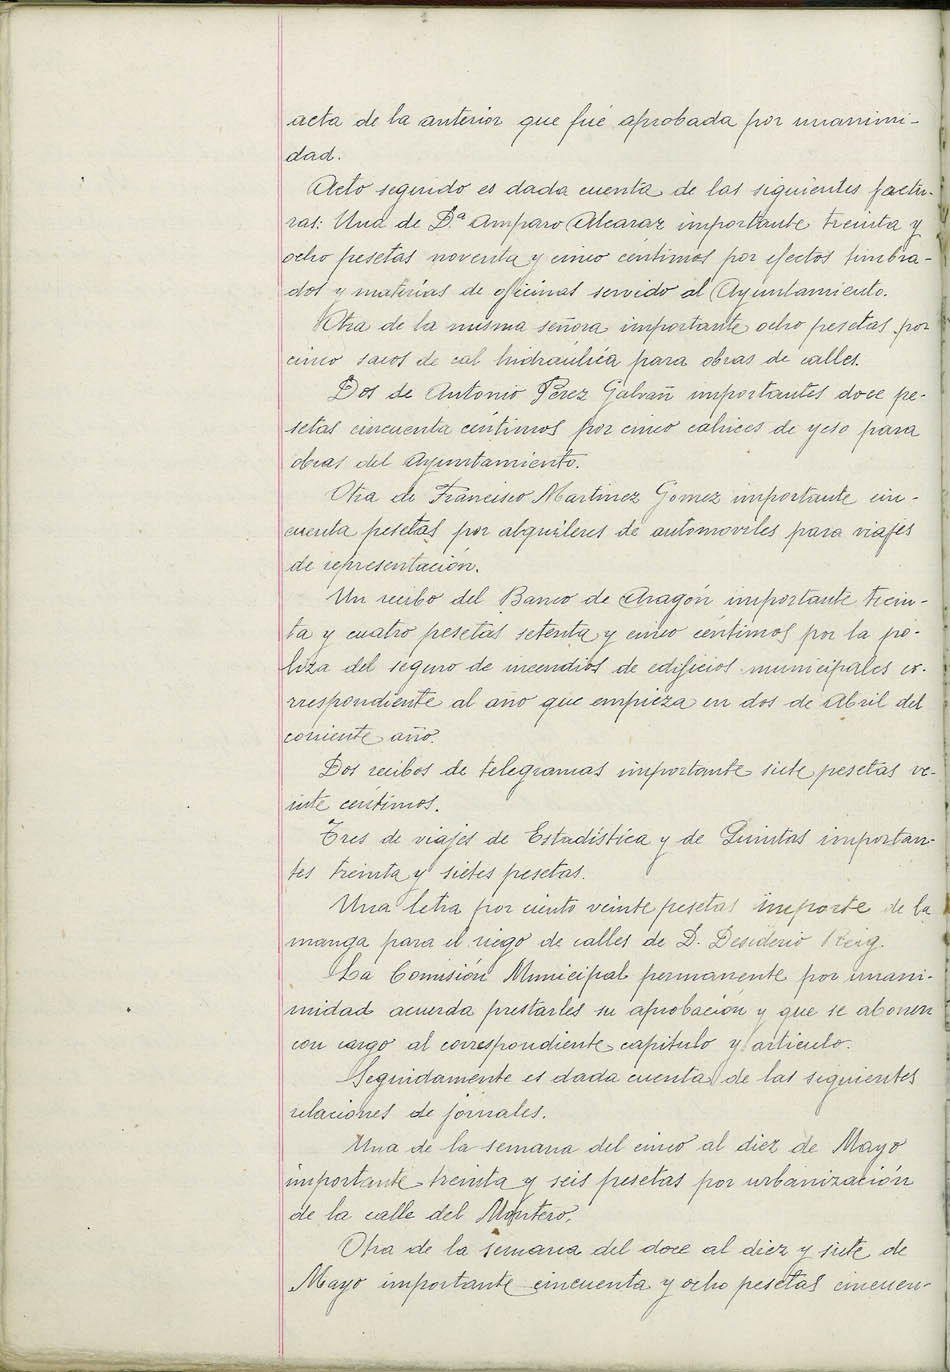 acta de la anterior que fué aprobada por unanimi-
dad.
Acto seguido es dada cuenta de las siguientes factu-
ras: Una de D.ª Amparo Alcaraz importante treinta y
ocho pesetas noventa y cinco céntimos por efectos timbra-
dos y materias de oficinas servido al Ayuntamiento.
Otra de la misma señora importante ocho pesetas por
cinco sacos de cal hidraúlica para obras de calles.
Dos de Antonio Perez Galvañ importantes doce pe-
setas cincuenta céntimos por cinco cahices de yeso para
obras del Ayuntamiento.
Otra de Francisco Martinez Gomez importante cin-
cuenta pesetas por alquileres de automoviles para viajes
de representación.
Un recibo del Banco de Aragón importante trein-
ta y cuatro pesetas setenta y cinco céntimos por la po-
liza del seguro de incendios de edificios municipales co-
rrespondiente al año que empieza en dos de Abril del
corriente año.
Dos recibos de telegramas importante siete pesetas ve-
inte centimos.
Tres de viajes de Estadística y de Quintas importan-
tes treinta y sietes pesetas.
Una letra por ciento veinte pesetas importe de la
manga para el riego de calles de D. Desiderio Reig.
La Comisión Municipal permanente por unani-
midad acuerda prestarles su aprobación y que se abonen
con cargo al correspondiente capitulo y articulo.
Seguidamente es dada cuenta de las siguientes
relaciones de jornales.
Una de la semana del cinco al diez de Mayo
importante treinta y seis pesetas por urbanización
de la calle del Montero.
Otra de la semana del doce al diez y siete de
Mayo importante cincuenta y ocho pesetas cincuen-